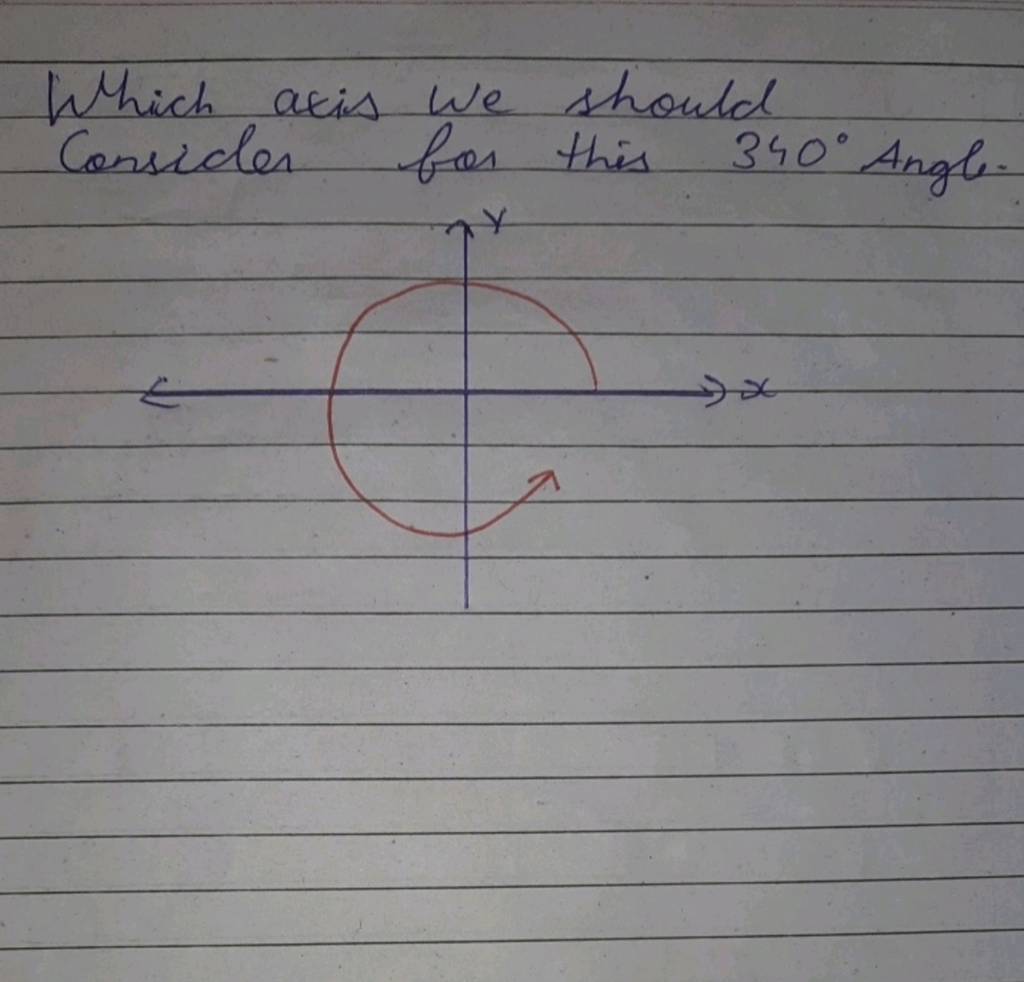 Which axis we should
Consider for this 340° Angle.
Y
x